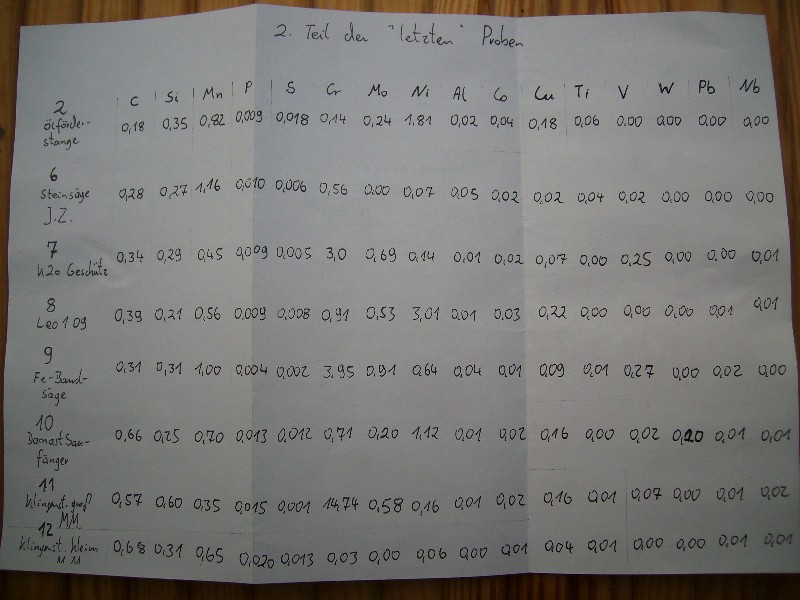 2. Teil der "letzten" Proben
C Si Mn P S Cr Mo Ni Al Co Cu Ti V W Pb Nb
2
Ölförder-
stange
0,18 0,35 0,82 0,009 0,018 0,14 0,24 1,81 0,02 0,04 0,18 0,06 0.00 0,00 0,00 0,00
6
Steinsäge
J.Z.
0,28 0,27 1,16 0,010 0,006 0,56 0.00 0,07 0,05 0,02 0,02 0,04 0,02 0,00 0,00 0,00
7
K20 Geschütz
0,34 0,29 0,45 0,009 0,005 3,0 0,69 0,14 0,01 0,02 0,07 0,00 0,25 0,00 0.00 0,01
8
Leo 1 09
0,39 0,21 0,56 0,009 0,008 0,91 0,53 3,01 0,01 0,03 0,22 0,00 0,00 0,00 0,01 0,01
9
Fe-Band-
säge
0,31 0,31 1,00 0,004 0,002 3,95 0,91 0,64 0,04 0,01 0,09 0,01 0,27 0,00 0,02 0,00
10
fänger
0,66 0,25 0,70 0,013 0,012 0,71 0,20 1,12 0,01 0,02 0,16 0,00 0,02 0,20 0,01 0,01
11
Klingenst. groß
MM
0,57 0,60 0,35 0,015 0,001 14,74 0,58 0,16 0,01 0,02 0,16 0,01 0,07 0,00 0,01 0,02
12
Klingenst. klein
MM
0,68 0,31 0,65 0,020 0,013 0,03 0,00 0,06 0,00 0,01 0,04 0,01 0,00 0,00 0,01 0,01